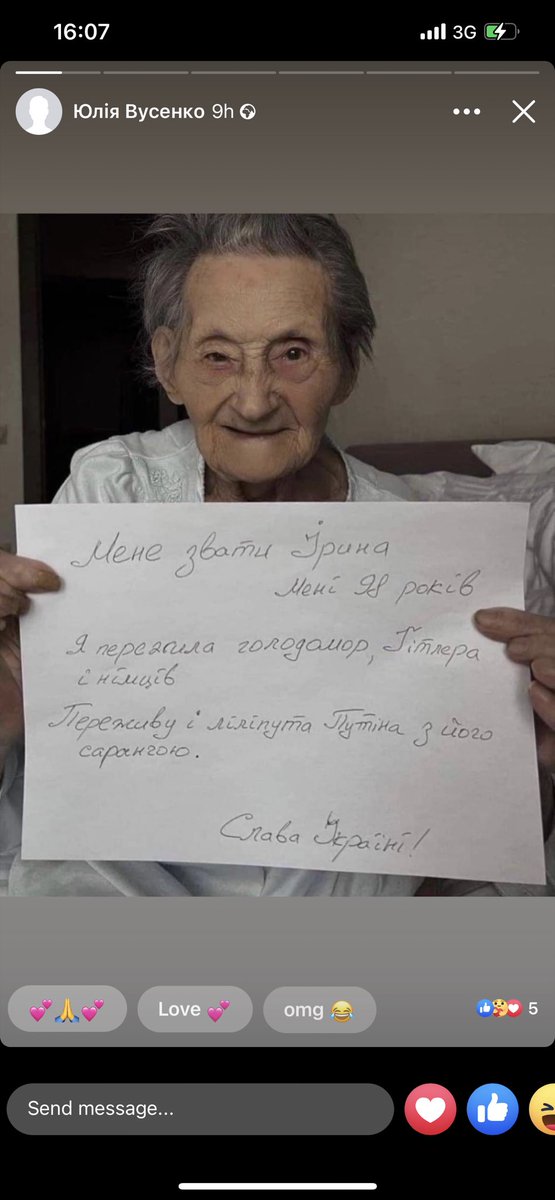 16:07
3G
Юлія Вусенко 9h
Мене звати Ірина
Мені 98 років
Я пережила голодомор, Гітлера
і німців
Переживу і ліліпута Путіна з його
сарангою.
Слава Україні!
💕🙏💕
Love 💕
omg 😂
5
Send message...